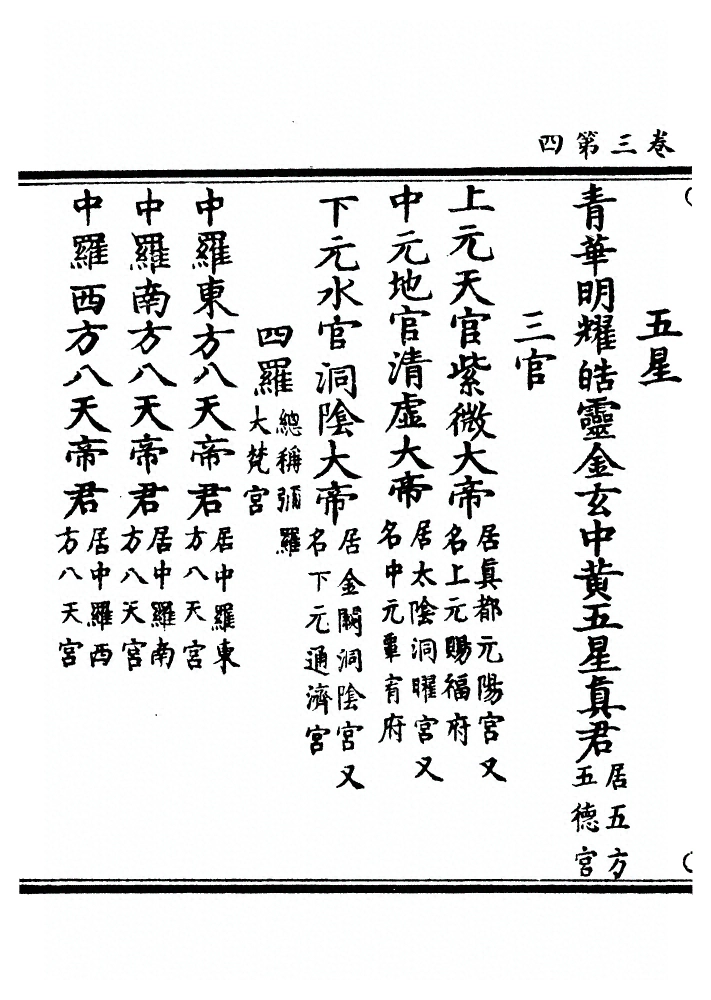 卷三第四
五星
青華明耀皓靈金玄中黃五星真君居五方五德宮
三官
上元天官紫微大帝居真都元陽宮又名上元賜福府
中元地官清虛大帝居太陰洞曜宮又名中元覃宥府
下元水官洞陰大帝居金闕洞陰宮又名下元通濟宮
四羅總稱彌羅大梵宮
中羅東方八天帝君居中羅東方八天宮
中羅南方八天帝君居中羅南方八天宮
中羅西方八天帝君居中羅西方八天宮